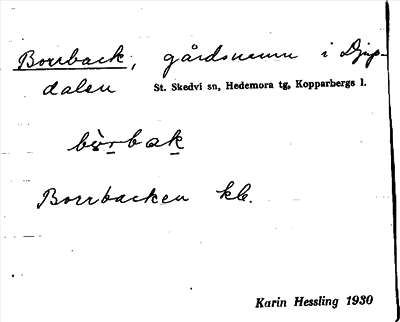 Borrback, gårdsnamn i Djup-
dalen St. Skedvi sn, Hedemora tg, Kopparbergs l.
bòrbak
Borrbacken kb.
Karin Hessling 1930